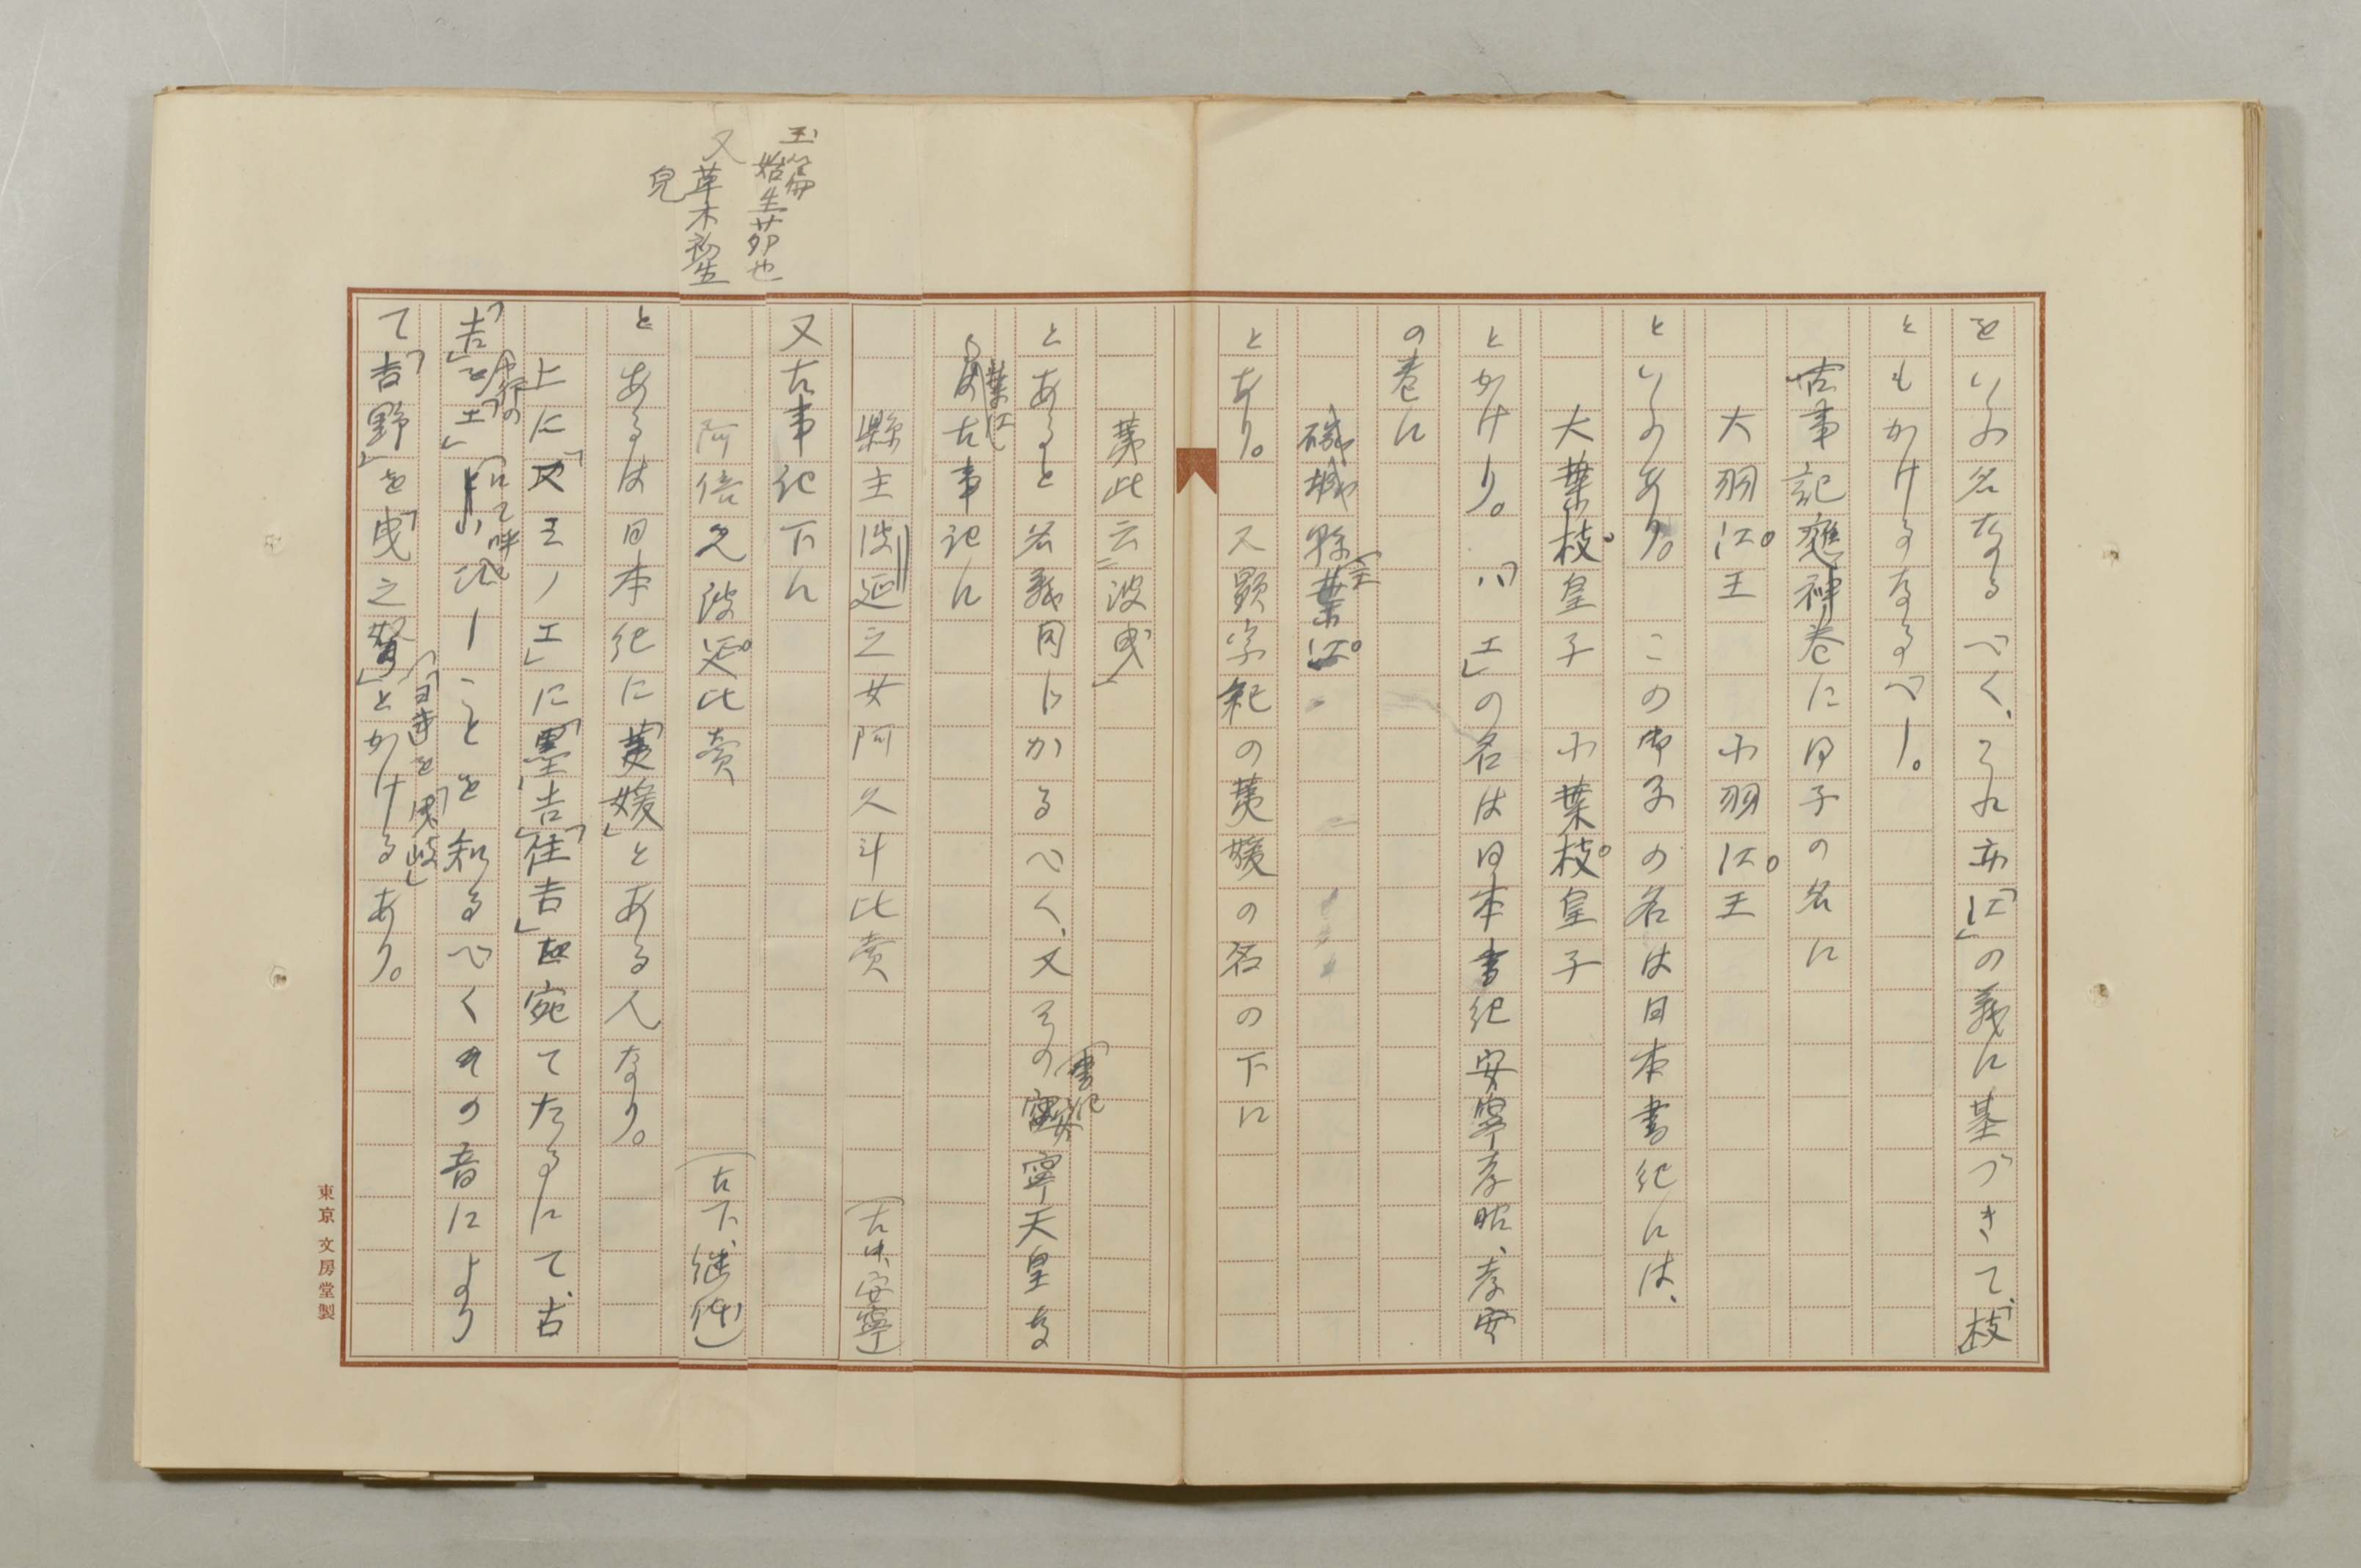 をいふ名なるべく、これ亦「江」の義に基づきて、「枝」
ともかけるなるべし。
古事記應神巻に田子の名に
大羽江王　小羽江王
といふあり。この御子の名は日本書紀には、
大葉枝皇子　小葉枝皇子
とかけり。「ハエ」の名は日本書紀安寧、孝昭、孝安
の巻に
磯城縣主葉江
とあり。又顕宗紀の荑媛の名の下に
荑此云波曳」
とあると名義同じかるべく、又その書紀安寧天皇
葉江は古事記に
縣主波延之女阿久斗比賣　（古中、安寧）
又古事記下に
阿倍之波延比賣　（古下、継体）
とあるは日本紀に「荑媛」とある人なり。
上に「エ」に「墨吉」「住吉」を宛てたるにて、古
「吉」を「エ」にて呼びしことを知るべくその音により
て「吉野」を「曳之弩」とかけるあり。
玉篇
始生茆也
又草木初生
皃
東京 文房堂製